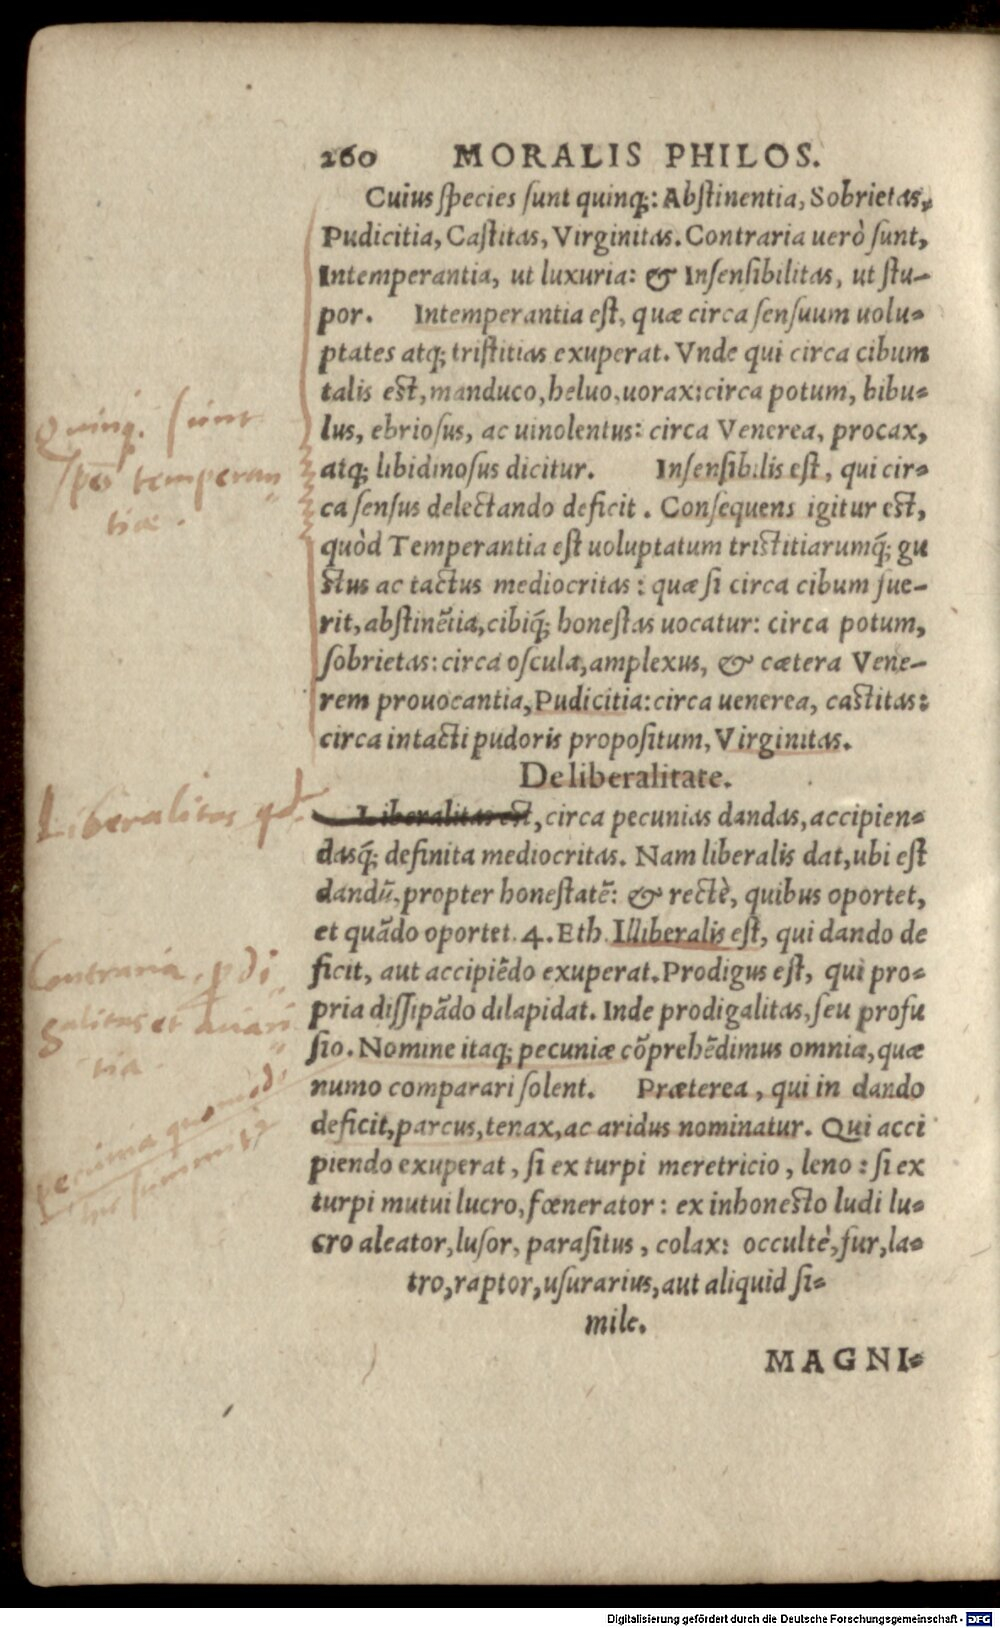 260 MORALIS PHILOS.
Cuius species sunt quinq;: Abstinentia, Sobrietas,
Pudicitia, Castitas, Virginitas. Contraria uerò sunt,
Intemperantia, ut luxuria: & Insensibilitas, ut stu-
por. Intemperantia est, quæ circa sensuum uolu-
ptates atq; tristitias exuperat. Vnde qui circa cibum
talis est, manduco, heluo, uorax: circa potum, bibu-
lus, ebriosus, ac uinolentus: circa Venerea, procax,
atq; libidinosus dicitur. Insensibilis est, qui cir-
ca sensus delectando deficit. Consequens igitur est,
quòd Temperantia est uoluptatum tristitiarumq́; gu
stus ac tactus mediocritas: quæ si circa cibum fue-
rit, abstinẽtia, cibiq́; honestas uocatur: circa potum,
sobrietas: circa oscula, amplexus, & cætera Vene-
rem prouocantia, Pudicitia: circa uenerea, castitas:
circa intacti pudoris propositum, Virginitas.
De liberalitate.
Liberalitas est, circa pecunias dandas, accipien-
dasq́; definita mediocritas. Nam liberalis dat, ubi est
dandũ, propter honestatẽ: & rectè, quibus oportet,
et quãdo oportet. 4. Eth. Illiberalis est, qui dando de
ficit, aut accipiẽdo exuperat. Prodigus est, qui pro-
pria dissipãdo dilapidat. Inde prodigalitas, seu profu
sio. Nomine itaq; pecuniæ cõprehẽdimus omnia, quæ
numo comparari solent. Præterea, qui in dando
deficit, parcus, tenax, ac aridus nominatur. Qui acci
piendo exuperat, si ex turpi meretricio, leno: si ex
turpi mutui lucro, fœnerator: ex inhonesto ludi lu-
cro aleator, lusor, parasitus, colax: occultè, fur, la-
tro, raptor, usurarius, aut aliquid si-
mile.
MAGNI-
Quinq; sunt
spēs temperan
tiæ.
Liberalitas qd.
Contraria, pdi
galitas et auari
tia.
pecunia quomodo
Digitalisierung gefördert durch die Deutsche Forschungsgemeinschaft - DFG